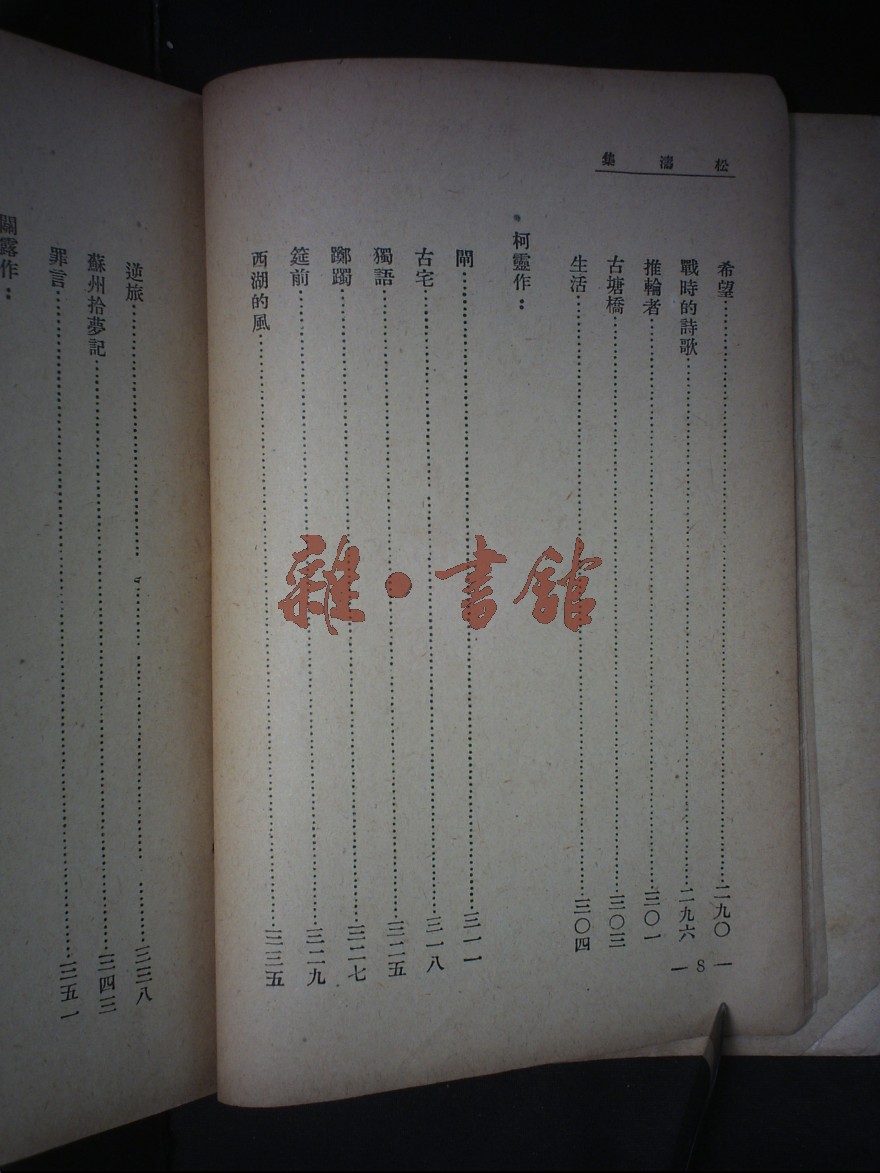 松濤集
希望…………二九〇
戰時的詩歌…………二九六
推輪者…………三〇一
古塘橋…………三〇三
生活…………三〇四
柯靈作：
閘…………三一一
古宅…………三一八
獨語…………三二五
躑躅…………三二七
筵前…………三二九
西湖的風…………三三五
— 8 —
逆旅…………三三八
蘇州拾夢記…………三四三
罪言…………三五一
關露作：
雜·書館